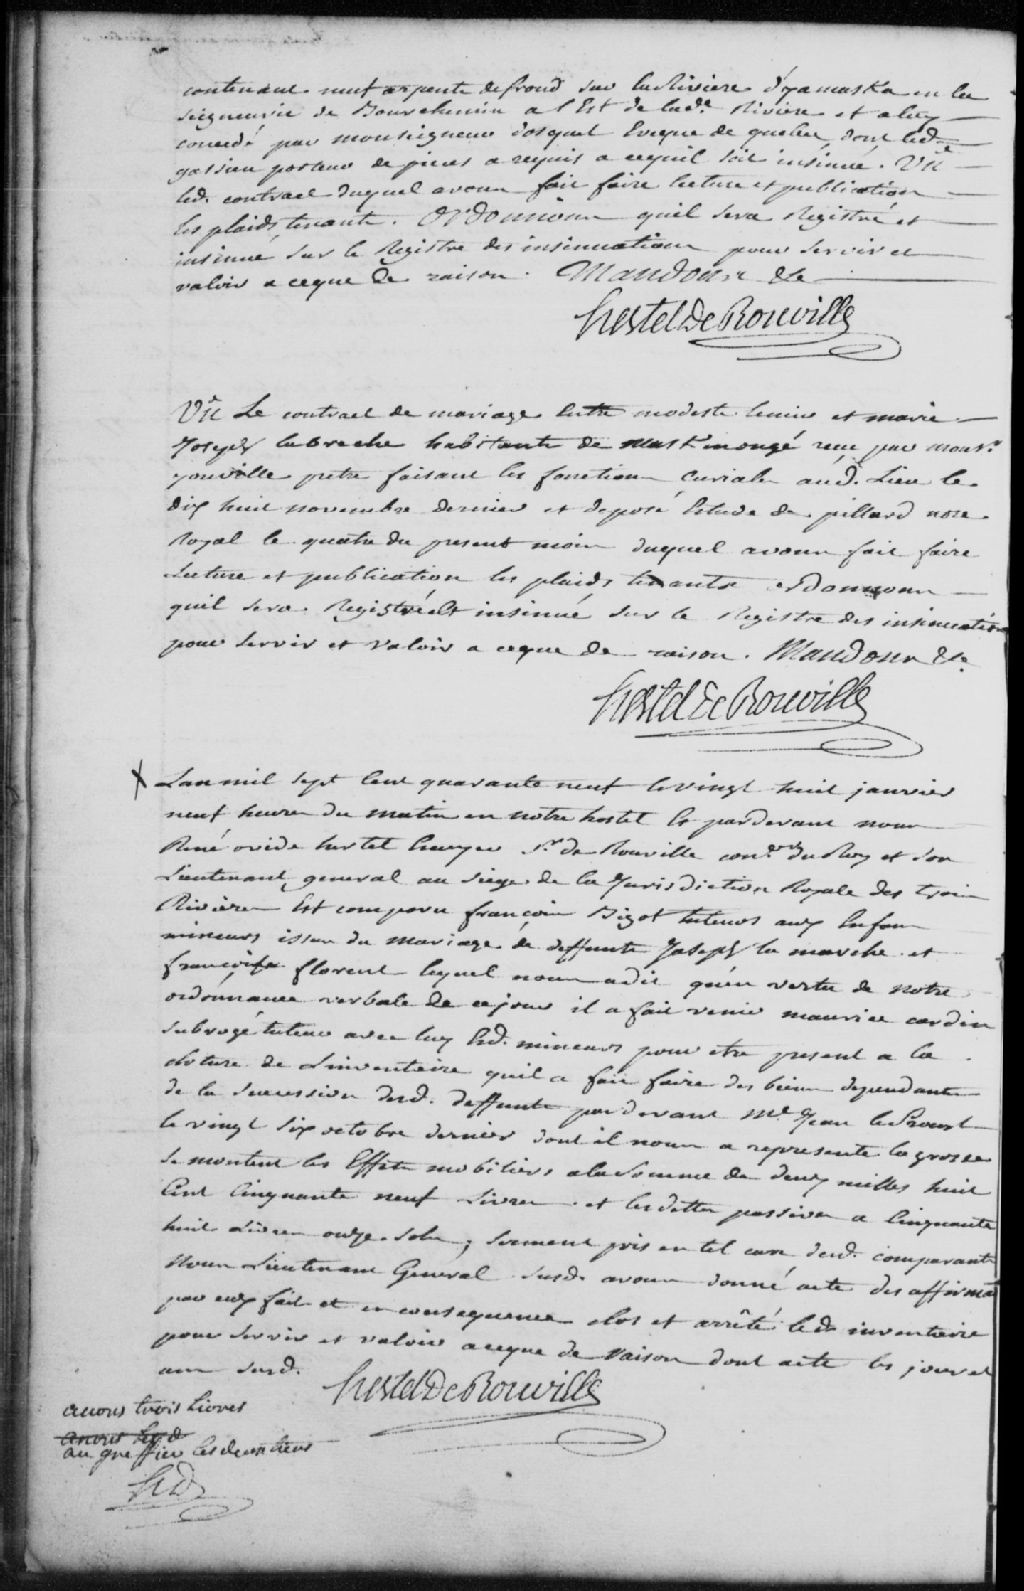 contenant neuf arpents defrond sur la Riviere d'yamaska en la
seigneurie de Bourchemin a l'Est de lad.e Riviere et a luy
concedé par monseigneur dosquet Eveque de quebec, dont led.
gassien porteur de pieces a requis a cequil soit insinué. Vû
led. contract duquel avons fait faire lecture et publication
les plaids tenants. Ordonnons quil sera Registré et
insinué sur le Registre des insinuations pour servir et
valoir a ceque de raison. Mandons &c
hertel De Rouville
Vû Le contract de mariage Entre modeste lemire et marie
Joseph labreche habitants de maskinongé reçu par mons.r
youville pretre faisant les fonctions curiales aud. Lieu le
dix huit novembre dernier et deposé Estude de pillard no.re
Royal le quatre du present mois duquel avons fait faire
Lecture et publication les plaids tenants ordonnons
quil sera Registré et insinué sur le Registre des insinuations
pour servir et valoir a ceque de raison. Mandons &c.
hertel De Rouville
X Lan mil sept Cent quarante neuf le vingt huit janvier
neuf heures du matin en notre hostel Et pardevant nous
René ovide hertel Ecuyer S.r de Rouville con.er du Roy et son
Lieutenant general au siege de la Jurisdiction Royale des trois
Rivieres Est comparu françois Bigot tuteurs aux Enfans
mineurs issus du mariage de deffunts Joseph la marche et
françoise florent lequel nous adit qu'en vertu de notre
ordonnance verbale de cejour il a fait venir maurice cardin
subrogé tuteur avec luy Esd. mineurs pour etre present a la
cloture de Linventaire quil a fait faire des biens dependants
de la succession desd. deffunts pardevant M.e Jean le Proust
le vingt six octobre dernier dont il nous a representé la grosse
se montent les Effets mobiliers a la somme de deux milles huit
Cent Cinquante neuf Livres et les dettes passives a Cinquante
huit Livres onze sols; serment pris en tel cas desd. comparants
Nous Lieutenant General susd. avons donné acte des affirmat
par eux fait et en consequence clos et arrêté led. inventaire
pour servir et valoir a ceque de raison dont acte les jour et
an susd.
hertel De Rouville
avons trois Livres
au greffier les deux tiers